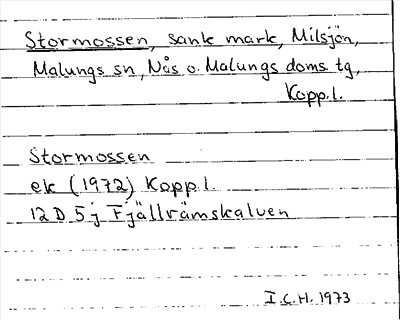 Stormossen, sank mark, Milsjön,
Malungs sn, Nås o. Malungs doms. tg,
Kopp.l.
Stormossen
ek (1972) Kopp l.
12 D 5 j Fjällrämskalven
I.C.H. 1973